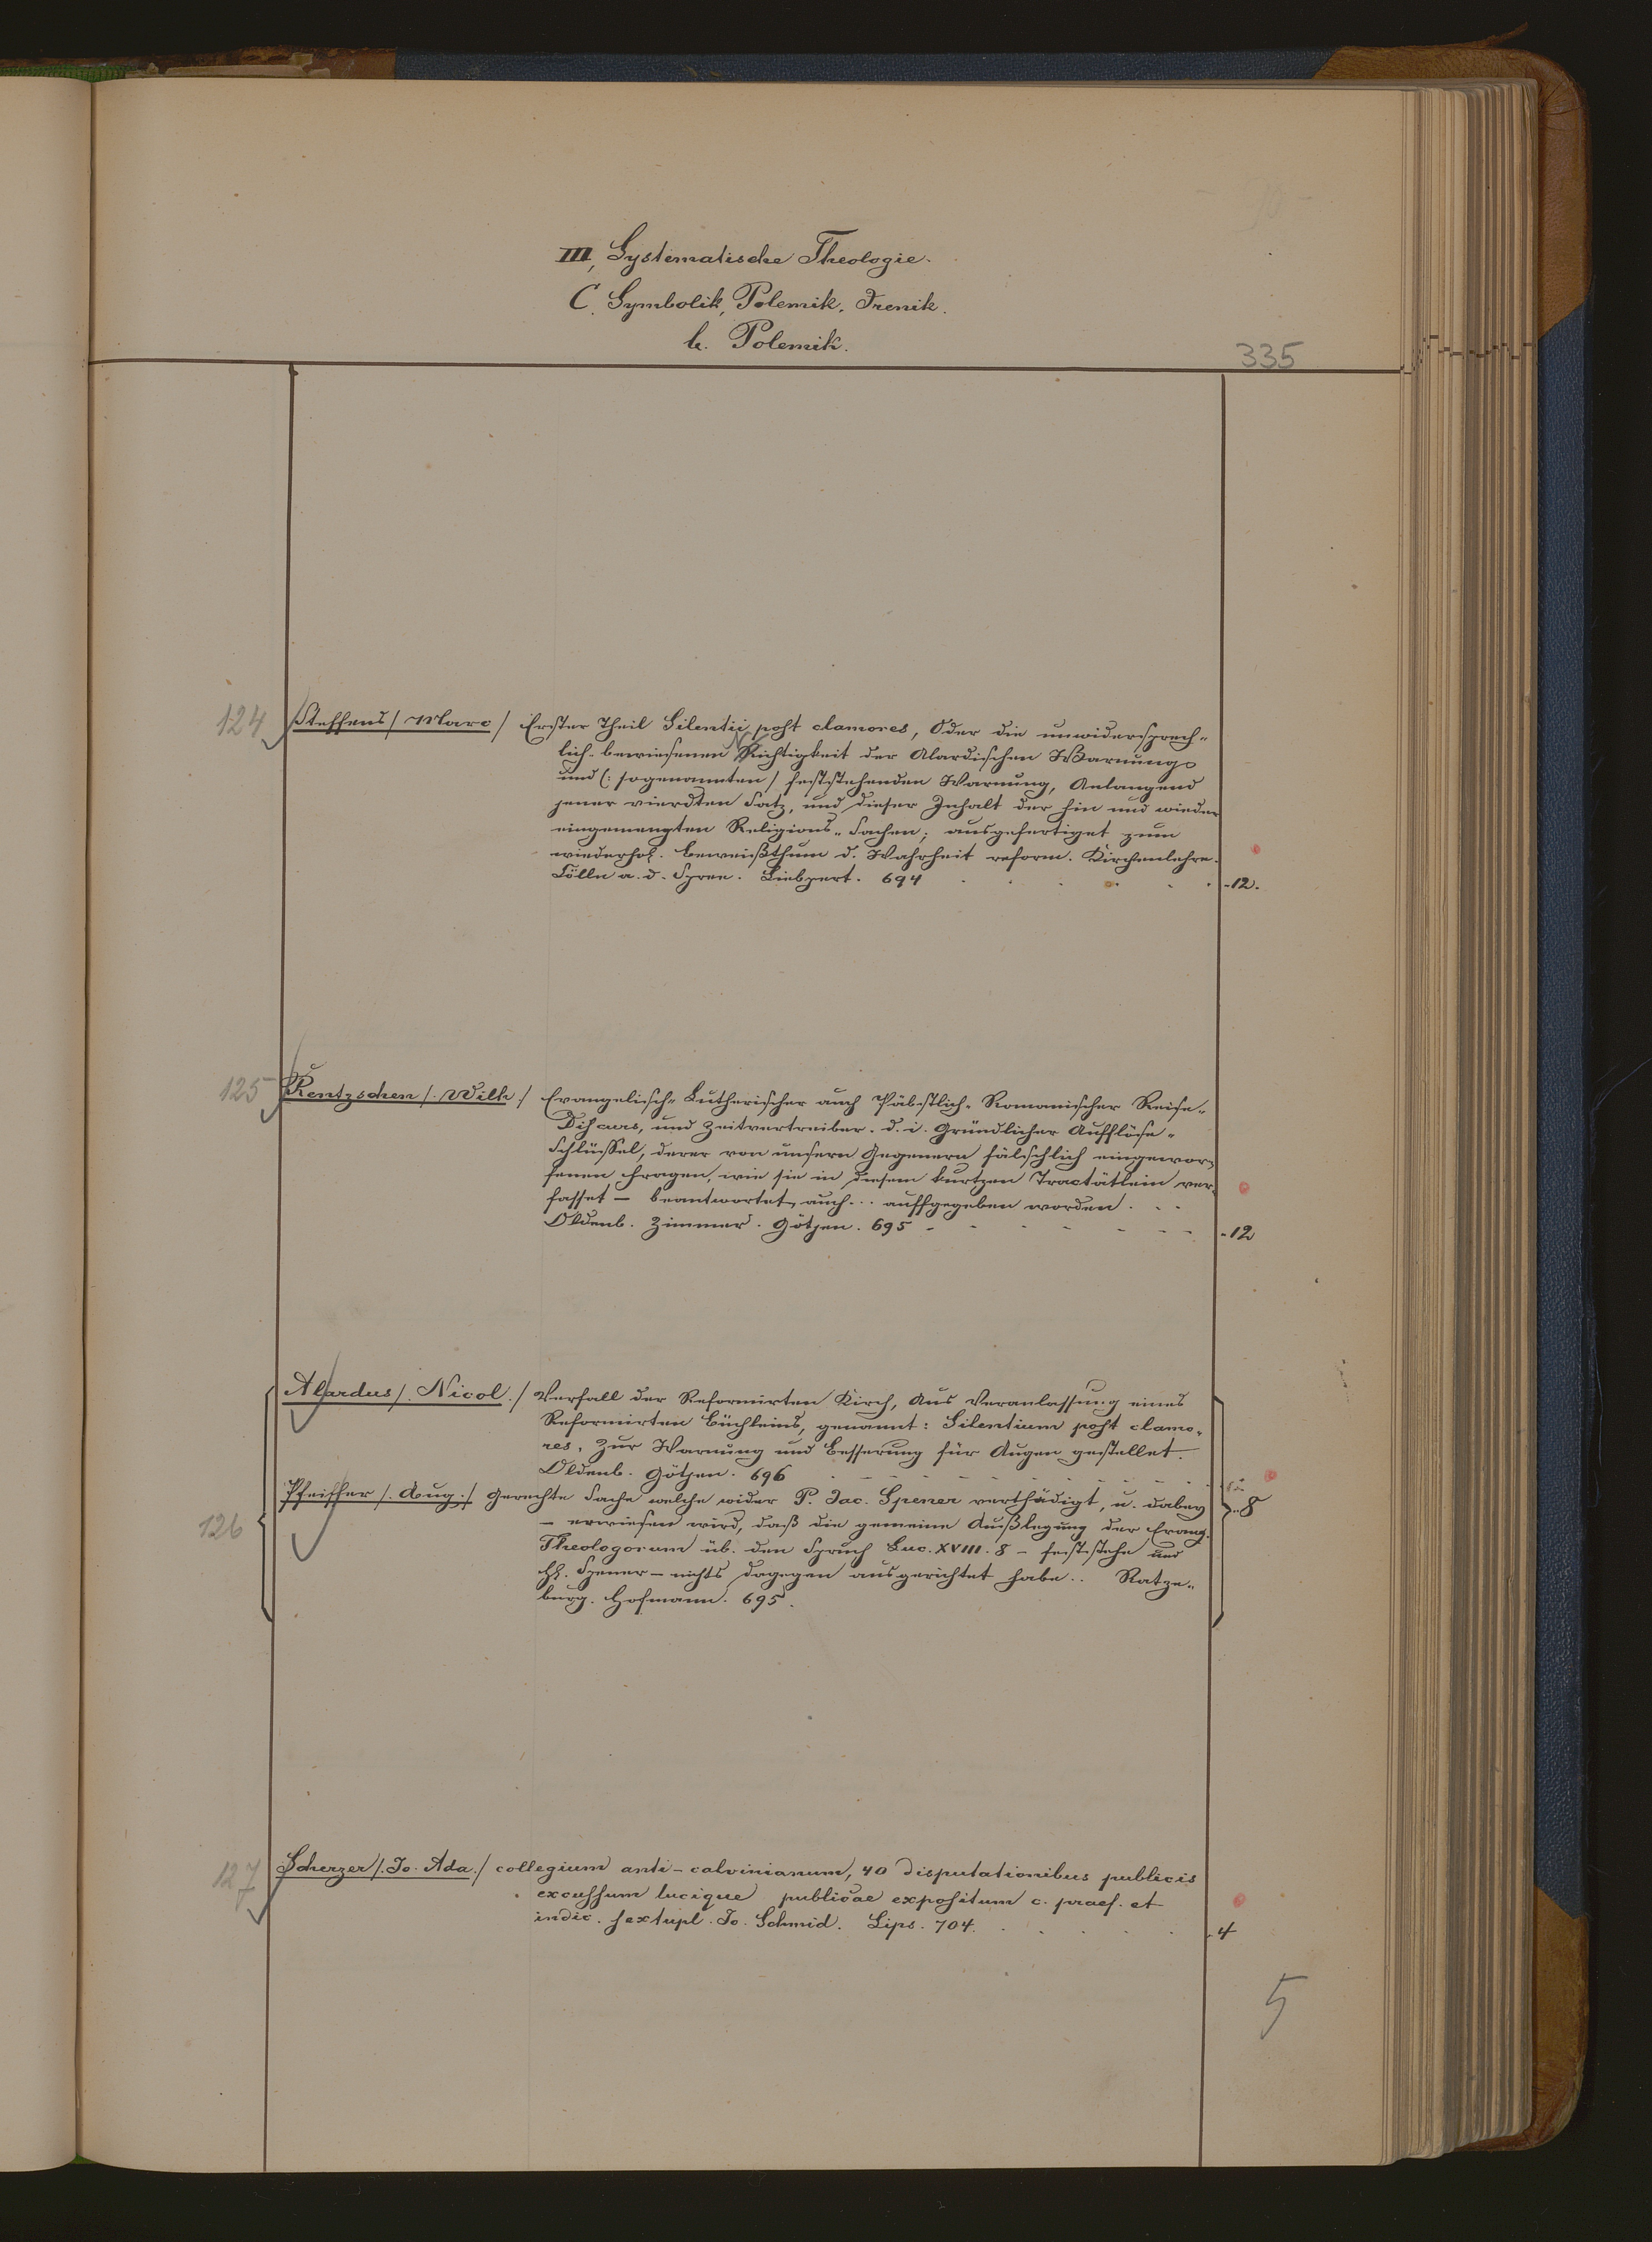 III, Systematische Theologie.
C. Symbolik, Polemik, Irenik.
b. Polemik.
335
124 Steffens /Marc/ Erster Theil Silentii post clamores, Oder die unwidersprech-
lich-bewiesenen Nichtigkeit der Alardischen Warnungs
und (: sogenannten / feststehenden Warnung, Anlangend
jener vierdten Satz, und dieser Inhalt der hin und wieder
eingemengten Religions-Sachen; ausgefertiget zum
wiederhol. Beweißthum d. Wahrheit reform. Kirchenlehre.
Cölln a. d. Spree. Liebpert. 694 - 12.
125 Rentzschen /. Wilh./ Evangelisch-Lutherischer auch Päbstlich-Romanischer Reise-
Discurs, und Zeitvertreiber. d. i. Gründlicher Aufflöse-
Schlüssel, derer von unsern Gegenern fälschlich eingewor-
fenen Fragen, wie sie in diesem kurtzen Tractätlein ver-
fasset – beantwortet, auch... auffgegeben worden...
Oldenb. Zimmer. Götzen. 695 - 12
Alardus /. Nicol./ Verfall der Reformirten Kirch, Aus Veranlassung eines
Reformirten Büchleins, genannt: Silentium post clamo-
res, Zur Warnung und Besserung für Augen gestellet.
Oldenb. Götzen. 696
126 Pfeiffer /. Aug./ Gerechte Sache welche wider P. Jac. Spener verthädigt, u. dabey - 8
– erwiesen wird, daß die gemeine Außlegung der Evang.
Theologorum üb. den Spruch Luc. XVIII. 8 – feststehe und
HH. Spener – nichts dagegen ausgerichtet habe.. Ratze-
burg. Hofmann. 695.
127 Scherzer /. Jo. Ada./ collegium anti-calvinianum, 40 disputationibus publicis
excussum lucique publicae expositum c. praef. et
indic. sextupl. Jo. Schmid. Lips. 704. - 4
5